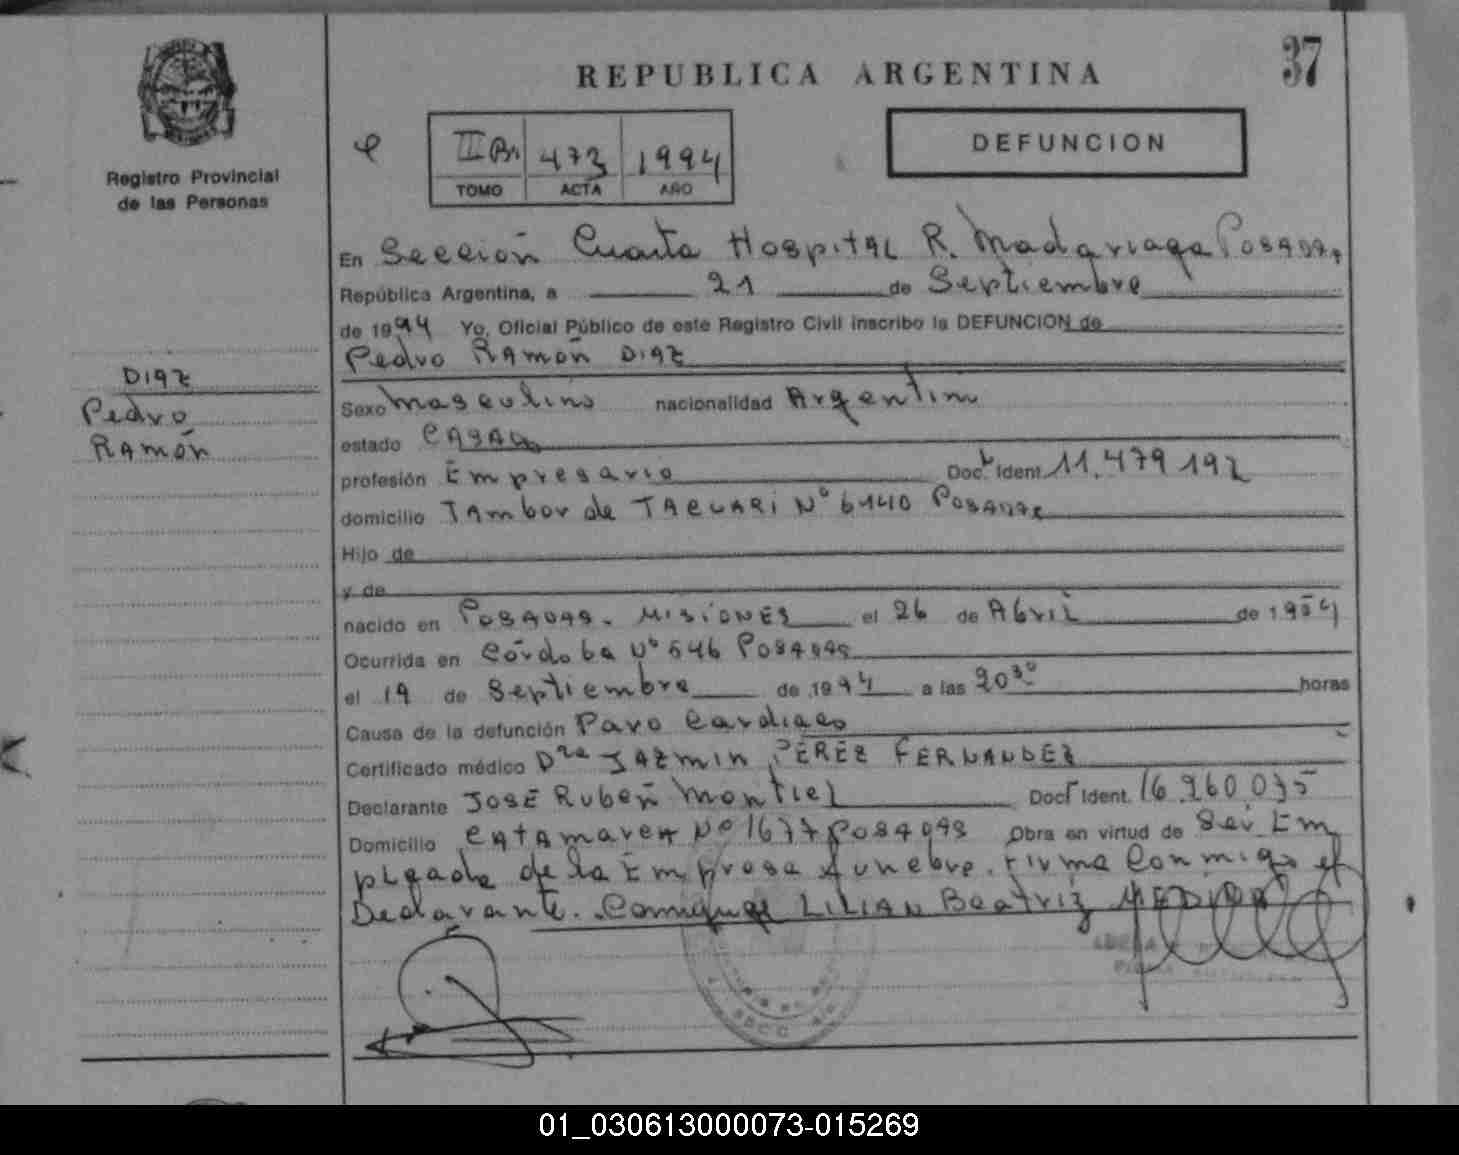 37
REPUBLICA ARGENTINA
DEFUNCION
Registro Provincial
de las Personas
473 1994
TOMO ACTA AÑO
En Sección Cuarta Hospital R. Madariaga Posadas
República Argentina, a 21 de Septiembre
de 1994 Yo, Oficial Público de este Registro Civil inscribo la DEFUNCION de
Pedro RAmón DIAZ
DIAZ
Pedro
RAmón
Sexo masculino nacionalidad Argentino
estado CASADO
profesión Empresario Doc. Ident. 11.479.192
domicilio TAmbor de TACUARi Nº 6140 POSADAS
Hijo de
y de
nacido en POSADAS. MISIONES el 26 de Abril de 1954
Ocurrida en Córdoba Nº 546 POSADAS
el 19 de Septiembre de 1994 a las 20³⁰ horas
Causa de la defunción Paro Cardiaco
Certificado médico Dra JAZMIN PÉREZ FERNANDEZ
Declarante JOSÉ RUBEN Montiel Doc. Ident. 16.960.035
Domicilio CATAMARCA Nº 1677 POSADAS Obra en virtud de Ser Em
pleado de la Empresa funebre. firma Conmigo el
Declarante. LILIAN Beatriz
01_030613000073-015269